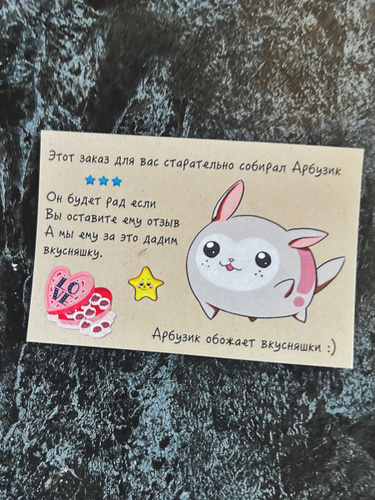 Этот заказ для вас старательно собирал Арбузик
Он будет рад если
Вы оставите ему отзыв
А мы ему за это дадим
вкусняшку.
LOVE
Арбузик обожает вкусняшки :)